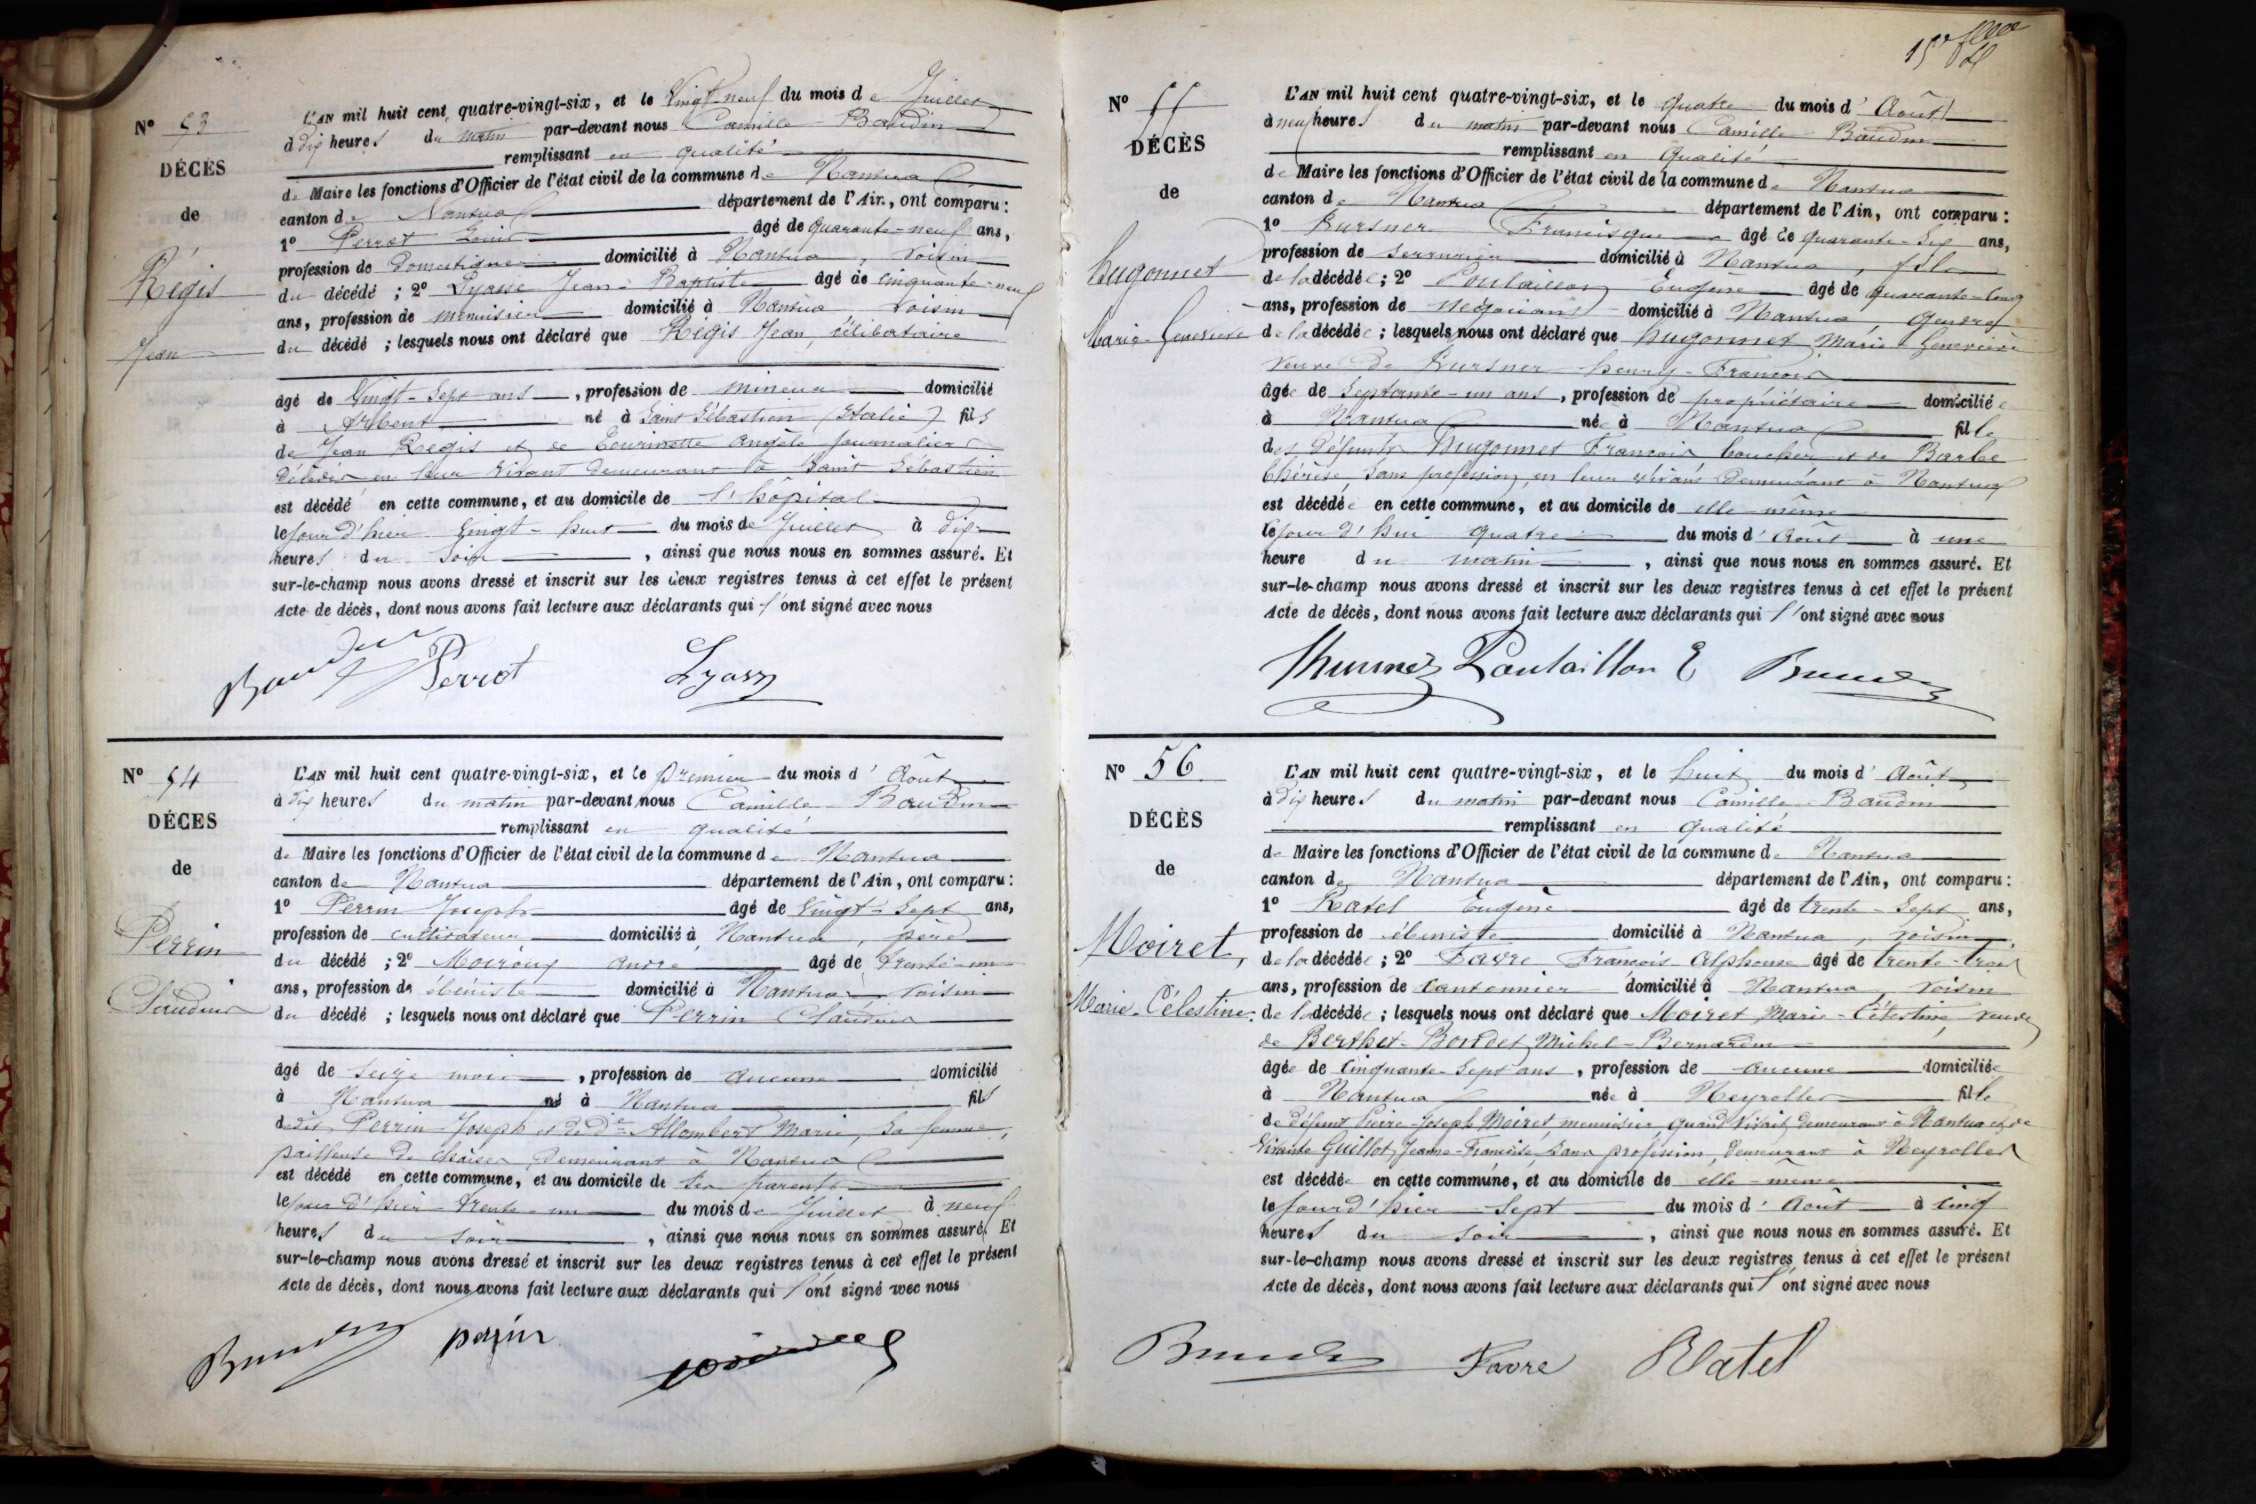 N° 53
DÉCÈS
de
Régis
Jean
L'AN mil huit cent quatre-vingt-six, et le Vingt-neuf du mois de Juillet
à dix heures du matin par-devant nous Camille Baudin
remplissant en qualité
de Maire les fonctions d'Officier de l'état civil de la commune de Nantua
canton de Nantua département de l'Ain, ont comparu :
1° Perrot Louis âgé de quarante-neuf ans,
profession de Domestique domicilié à Nantua, voisin
du décédé ; 2° Lyasse Jean-Baptiste âgé de cinquante-neuf
ans, profession de menuisier domicilié à Nantua voisin
du décédé ; lesquels nous ont déclaré que Régis Jean, célibataire
âgé de Vingt-Sept ans, profession de mineur domicilié
à Arbent né à Saint Sébastien (Italie) fils
de Jean Régis et de angèle journaliers
Décédés en leur vivant demeurant à Saint Sébastien
est décédé en cette commune, et au domicile de l'hôpital
le jour d'hier Vingt-huit du mois de Juillet à dix
heures du soir, ainsi que nous nous en sommes assuré. Et
sur-le-champ nous avons dressé et inscrit sur les deux registres tenus à cet effet le présent
Acte de décès, dont nous avons fait lecture aux déclarants qui l'ont signé avec nous
Baudin Perrot Lyasse
N° 54
DÉCÈS
de
Perrin
Claudius
L'AN mil huit cent quatre-vingt-six, et le premier du mois d'Août
à dix heures du matin par-devant nous Camille Baudin
remplissant en qualité
de Maire les fonctions d'Officier de l'état civil de la commune de Nantua
canton de Nantua département de l'Ain, ont comparu :
1° Perrin Joseph âgé de Vingt-Sept ans,
profession de cultivateur domicilié à Nantua, père
du décédé ; 2° Moiroux André âgé de trente-un
ans, profession de ébéniste domicilié à Nantua voisin
du décédé ; lesquels nous ont déclaré que Perrin Claudius
âgé de Seize mois, profession de aucune domicilié
à Nantua né à Nantua fils
dudit Perrin Joseph et de De Allombert Marie, sa femme,
pailleuse de chaises, Demeurant à Nantua
est décédé en cette commune, et au domicile de ses parents
le jour d'hier trente-un du mois de Juillet à neuf
heures du soir, ainsi que nous nous en sommes assuré. Et
sur-le-champ nous avons dressé et inscrit sur les deux registres tenus à cet effet le présent
Acte de décès, dont nous avons fait lecture aux déclarants qui l'ont signé avec nous
Baudin perrin
15e
N° 55
DÉCÈS
de
hugonnet
Marie-Geneviève
L'AN mil huit cent quatre-vingt-six, et le quatre du mois d'Août
à neuf heures du matin par-devant nous Camille Baudin
remplissant en Qualité
de Maire les fonctions d'Officier de l'état civil de la commune de Nantua
canton de Nantua département de l'Ain, ont comparu :
1° Kursner Francisque âgé de quarante-Six ans,
profession de serrurier domicilié à Nantua, fils
de la décédée ; 2° Poulaillon Eugène âgé de quarante-cinq
ans, profession de négociant domicilié à Nantua, Gendre
de la décédée ; lesquels nous ont déclaré que hugonnet Marie-Geneviève
veuve de Kursner henry-François
âgée de Septante-un ans, profession de propriétaire domiciliée
à Nantua née à Nantua fille
des Défunts Hugonnet François boucher et de Barbe
thérèse, Sans profession, en leur vivant Demeurant à Nantua
est décédée en cette commune, et au domicile de elle-même
le jour d'hui quatre du mois d'Août à une
heure du matin, ainsi que nous nous en sommes assuré. Et
sur-le-champ nous avons dressé et inscrit sur les deux registres tenus à cet effet le présent
Acte de décès, dont nous avons fait lecture aux déclarants qui l'ont signé avec nous
Poulaillon E Baudin
N° 56
DÉCÈS
de
Moiret,
Marie-Célestine.
L'AN mil huit cent quatre-vingt-six, et le huit du mois d'Août
à dix heures du matin par-devant nous Camille Baudin
remplissant en Qualité
de Maire les fonctions d'Officier de l'état civil de la commune de Nantua
canton de Nantua département de l'Ain, ont comparu :
1° Ratel Eugène âgé de trente-Sept ans,
profession de ébéniste domicilié à Nantua, voisin
de la décédée ; 2° Favre François Alphonse âgé de trente-trois
ans, profession de Cantonnier domicilié à Nantua voisin
de la décédée ; lesquels nous ont déclaré que Moiret Marie-Célestine veuve
de Berthet-Bondet Michel-Bernardin
âgée de Cinquante-Sept ans, profession de aucune domiciliée
à Nantua née à Neyrolles fille
de Défunt Pierre-Joseph Moiret, menuisier, quand vivait Demeurant à Nantua et de
Vivante Guillot, Jeanne-Françoise, Sans profession, Demeurant à Neyrolles
est décédée en cette commune, et au domicile de elle-même
le jour d'hier Sept du mois d'Août à Cinq
heures du soir, ainsi que nous nous en sommes assuré. Et
sur-le-champ nous avons dressé et inscrit sur les deux registres tenus à cet effet le présent
Acte de décès, dont nous avons fait lecture aux déclarants qui l'ont signé avec nous
Baudin Favre Ratel